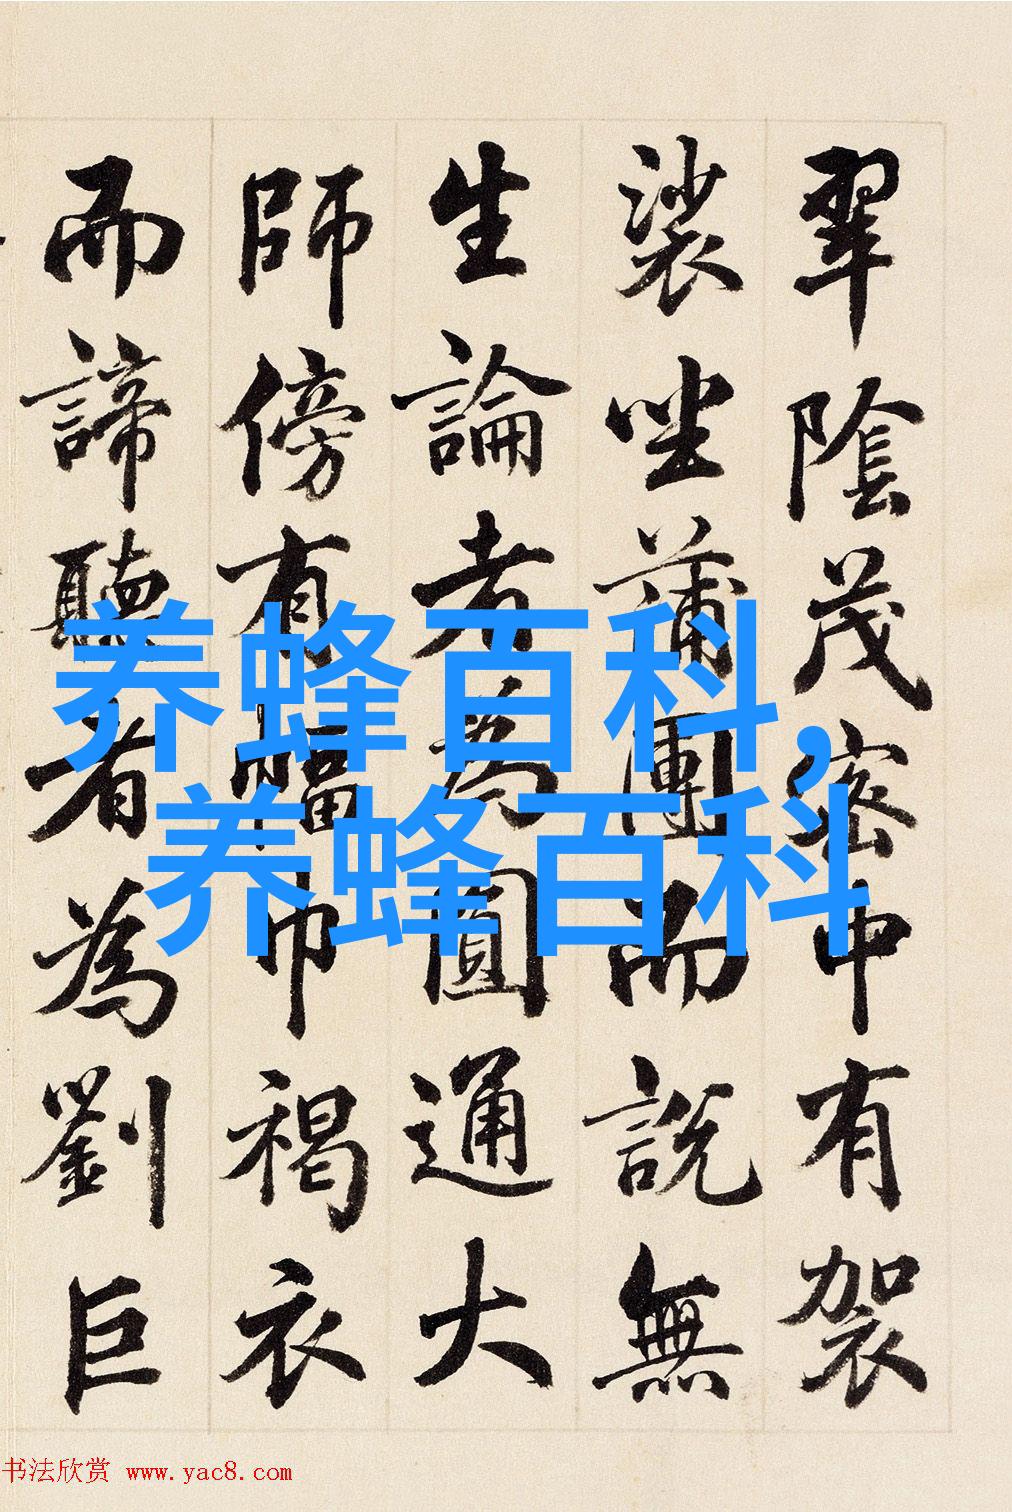 翠陰茂密中有袈
裟坐蒲團而說無
生論者為圓通大
師傍有幅巾褐衣
而諦聽者為劉巨
养蜂百科,
养蜂百科
书法欣赏 www.yac8.com